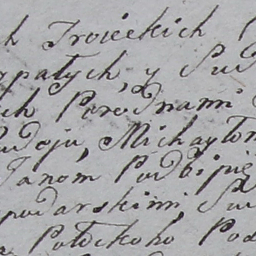 h Troickich
rpatych, y Sud
ch Porodnami
Sudoju, Michayłom
Janom Podbipię
podarskimi Su
Połockoho Pod